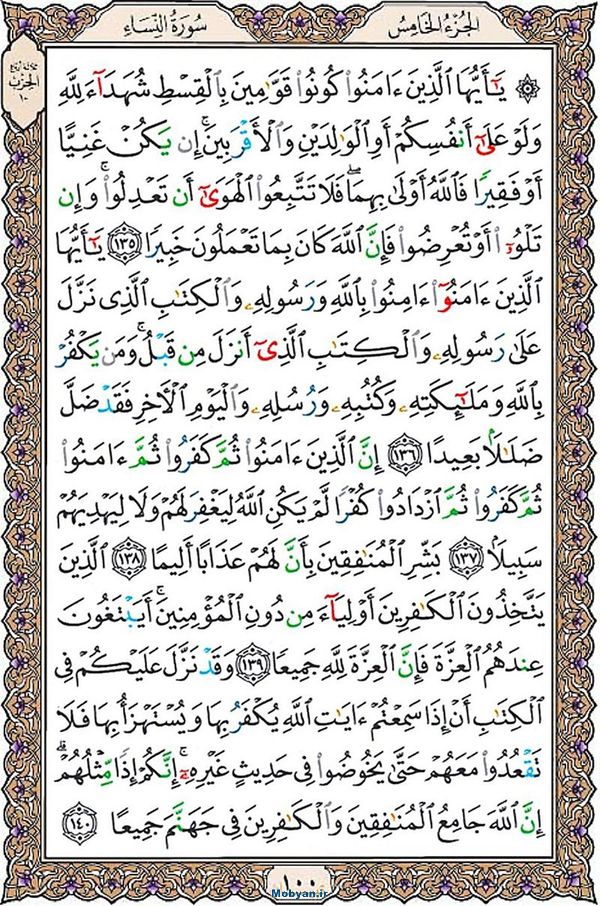 الجُزءُ الخَامِسُ
سُورَةُ النِّسَاءِ
الحِزْب
١٠
۞ يَـٰٓأَيُّهَا ٱلَّذِينَ ءَامَنُوا۟ كُونُوا۟ قَوَّٰمِينَ بِٱلْقِسْطِ شُهَدَآءَ لِلَّهِ
وَلَوْ عَلَىٰٓ أَنفُسِكُمْ أَوِ ٱلْوَٰلِدَيْنِ وَٱلْأَقْرَبِينَ ۚ إِن يَكُنْ غَنِيًّا
أَوْ فَقِيرًا فَٱللَّهُ أَوْلَىٰ بِهِمَا ۖ فَلَا تَتَّبِعُوا۟ ٱلْهَوَىٰٓ أَن تَعْدِلُوا۟ ۚ وَإِن
تَلْوُۥٓا۟ أَوْ تُعْرِضُوا۟ فَإِنَّ ٱللَّهَ كَانَ بِمَا تَعْمَلُونَ خَبِيرًا ١٣٥ يَـٰٓأَيُّهَا
ٱلَّذِينَ ءَامَنُوٓا۟ ءَامِنُوا۟ بِٱللَّهِ وَرَسُولِهِۦ وَٱلْكِتَـٰبِ ٱلَّذِى نَزَّلَ
عَلَىٰ رَسُولِهِۦ وَٱلْكِتَـٰبِ ٱلَّذِىٓ أَنزَلَ مِن قَبْلُ ۚ وَمَن يَكْفُرْ
بِٱللَّهِ وَمَلَـٰٓئِكَتِهِۦ وَكُتُبِهِۦ وَرُسُلِهِۦ وَٱلْيَوْمِ ٱلْـَٔاخِرِ فَقَدْ ضَلَّ
ضَلَـٰلًۢا بَعِيدًا ١٣٦ إِنَّ ٱلَّذِينَ ءَامَنُوا۟ ثُمَّ كَفَرُوا۟ ثُمَّ ءَامَنُوا۟
ثُمَّ كَفَرُوا۟ ثُمَّ ٱزْدَادُوا۟ كُفْرًا لَّمْ يَكُنِ ٱللَّهُ لِيَغْفِرَ لَهُمْ وَلَا لِيَهْدِيَهُمْ
سَبِيلًۢا ١٣٧ بَشِّرِ ٱلْمُنَـٰفِقِينَ بِأَنَّ لَهُمْ عَذَابًا أَلِيمًا ١٣٨ ٱلَّذِينَ
يَتَّخِذُونَ ٱلْكَـٰفِرِينَ أَوْلِيَآءَ مِن دُونِ ٱلْمُؤْمِنِينَ ۚ أَيَبْتَغُونَ
عِندَهُمُ ٱلْعِزَّةَ فَإِنَّ ٱلْعِزَّةَ لِلَّهِ جَمِيعًا ١٣٩ وَقَدْ نَزَّلَ عَلَيْكُمْ فِى
ٱلْكِتَـٰبِ أَنْ إِذَا سَمِعْتُمْ ءَايَـٰتِ ٱللَّهِ يُكْفَرُ بِهَا وَيُسْتَهْزَأُ بِهَا فَلَا
تَقْعُدُوا۟ مَعَهُمْ حَتَّىٰ يَخُوضُوا۟ فِى حَدِيثٍ غَيْرِهِۦٓ ۚ إِنَّكُمْ إِذًا مِّثْلُهُمْ ۗ
إِنَّ ٱللَّهَ جَامِعُ ٱلْمُنَـٰفِقِينَ وَٱلْكَـٰفِرِينَ فِى جَهَنَّمَ جَمِيعًا ١٤٠
١٠٠
Mobyan.ir